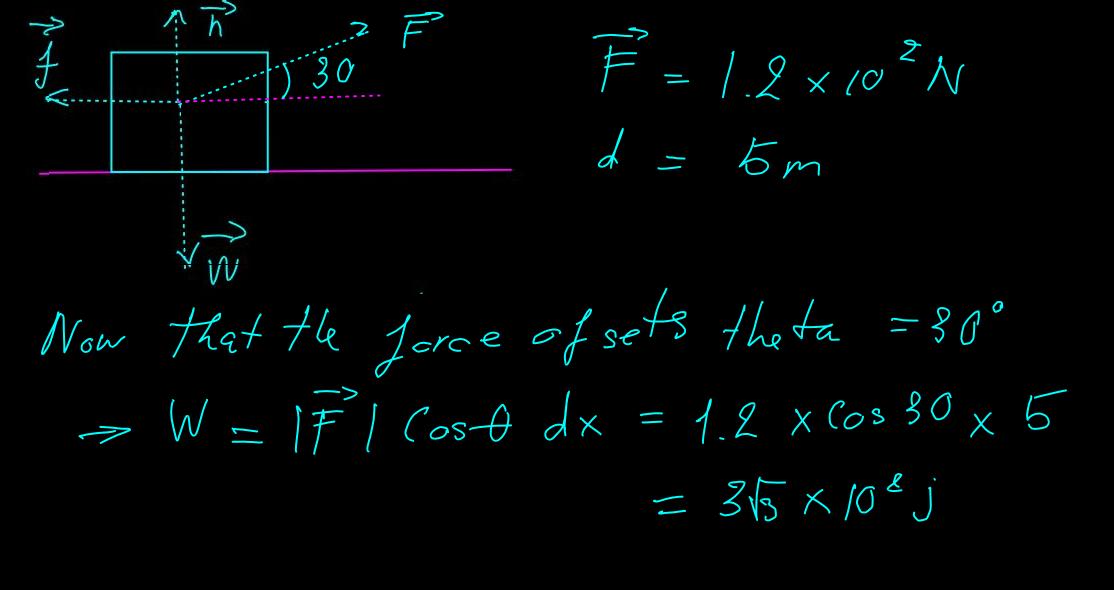 f⃗ n⃗ F⃗
30
W⃗
F⃗ = 1.2 × 10² N
d = 5m
Now that the force of sets theta = 30°
⇒ W = |F⃗| Cosθ dx = 1.2 × Cos 30 × 5
= 3√3 × 10² j